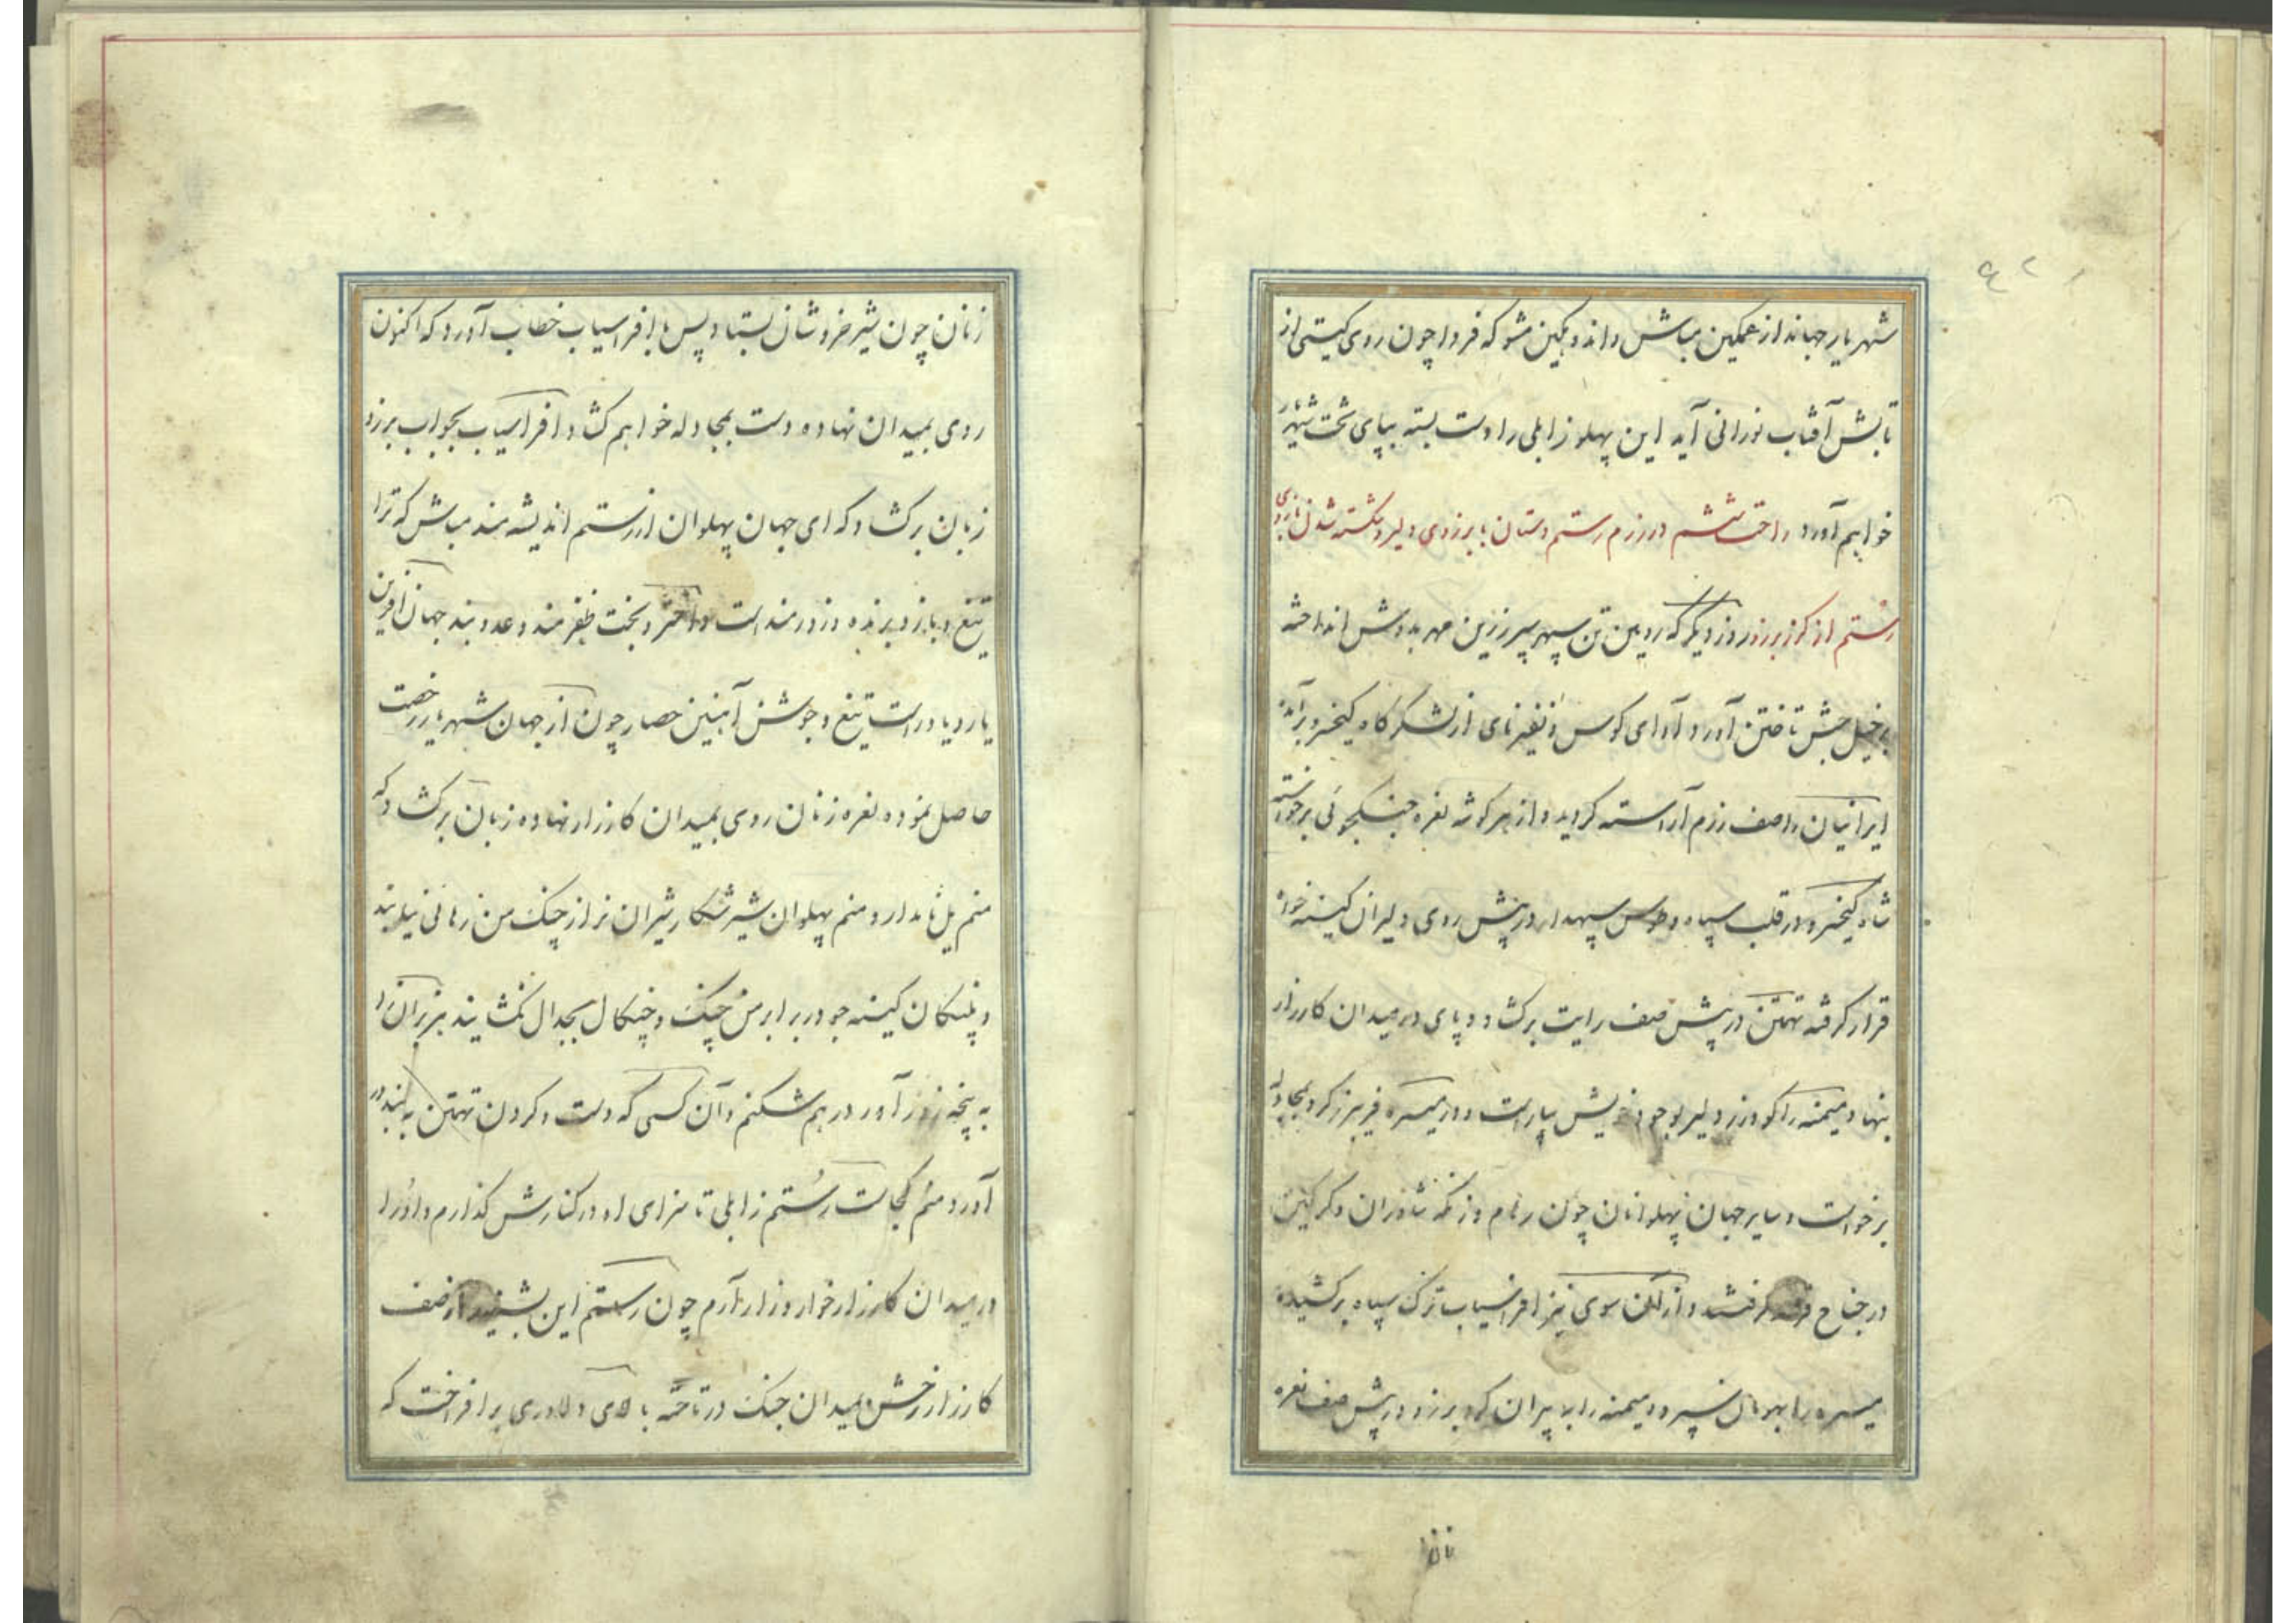 شهریار جهاندار غمگین مباش و اندوهگین مشو که فردا چون روی گیتی از
تابش آفتاب نورانی آید این پهلو زابلی را دست بسته بپای تخت شهریار
خواهم آورد داختشم در رزم رستم دستان با برزوی دلیر و شکسته شدن بازوی
رستم از کرز برزو روز دیگر که رویین تن سپهر سپر زرین مهر بدوش انداخته
بر خیل حبش تاختن آورد آوای کوس و نفیر نای از لشکرگاه کیخسرو برآمد
ایرانیان را صف رزم آراسته گردید و از هر گوشه نعره جنگجوئی برخواسته
شاه کیخسرو در قلب سپاه و طوس سپهدار در پیش روی دلیران کینه خواه
قرار گرفته تهمتن در پیش صف رایت برگشاد و پای در میدان کارزار
بنهاد میمنه را گودرز دلیر بوجود خویش بیاراست و در میسره فریبرز گرد بمجادله
برخواست و سایر جهان پهلوانان چون رهام و زنکه شاوران و گرگین
در جناح قرار گرفتند و از آن سوی نیز افراسیاب ترک سپاه برکشیده
میسره را بهومان سپرد و میمنه را با پیران گرد برزو در پیش صف نعره
زنان
زنان چون شیر خروشان بستاد پس با افراسیاب خطاب آورد که اکنون
روی بمیدان نهاده دست بمجادله خواهم گشاد افراسیاب بجواب برزو
زبان برگشاد که ای جهان پهلوان از رستم اندیشه مند مباش که ترا
تیغ و بازو برنده و زورمند است و اختر و بخت ظفرمند و عدو بند جهان آفرین
یار و یاور است تیغ و جوشن آهنین حصار چون از جهان شهریار رخصت
حاصل نموده نعره زنان روی بمیدان کارزار نهاده زبان برگشاد که
منم یل نامدار و منم پهلوان شیر شکار شیران نر از چنگ من رهائی نیابند
و پلنگان کینه جو در برابر من چنگ و چنگال بجدال نگشایند هزبران را
به پنجه زور آور در هم شکنم و آن کسی که دست و گردن تهمتن به بند در
آورد منم کجاست رستم زابلی تا سزای او در کنارش گذارم و او را
در میدان کارزار خوار و زار آرم چون رستم این بشنید از صف
کارزار رخش بمیدان جنگ در تاخته بالای دلاوری برافراخت که